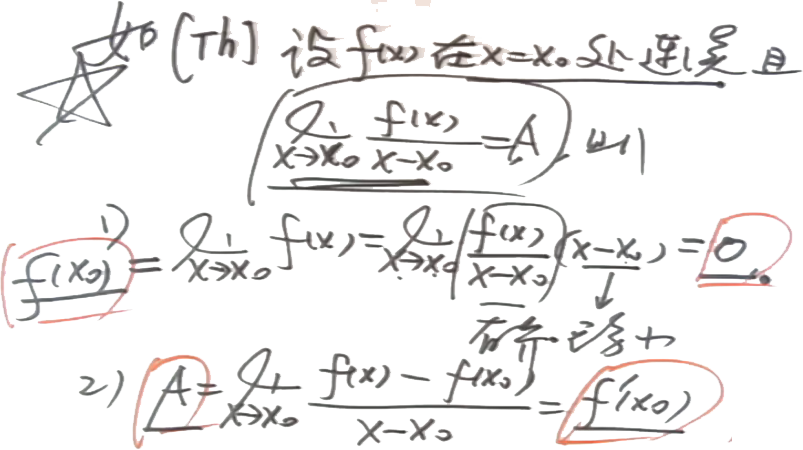 [Th] 设f(x)在x=x₀处连续且
lim x→x₀ f(x)/(x-x₀) = A, 则
1) f(x₀) = lim x→x₀ f(x) = lim x→x₀ (f(x)/(x-x₀))(x-x₀) = 0
2) A = lim x→x₀ (f(x)-f(x₀))/(x-x₀) = f'(x₀)